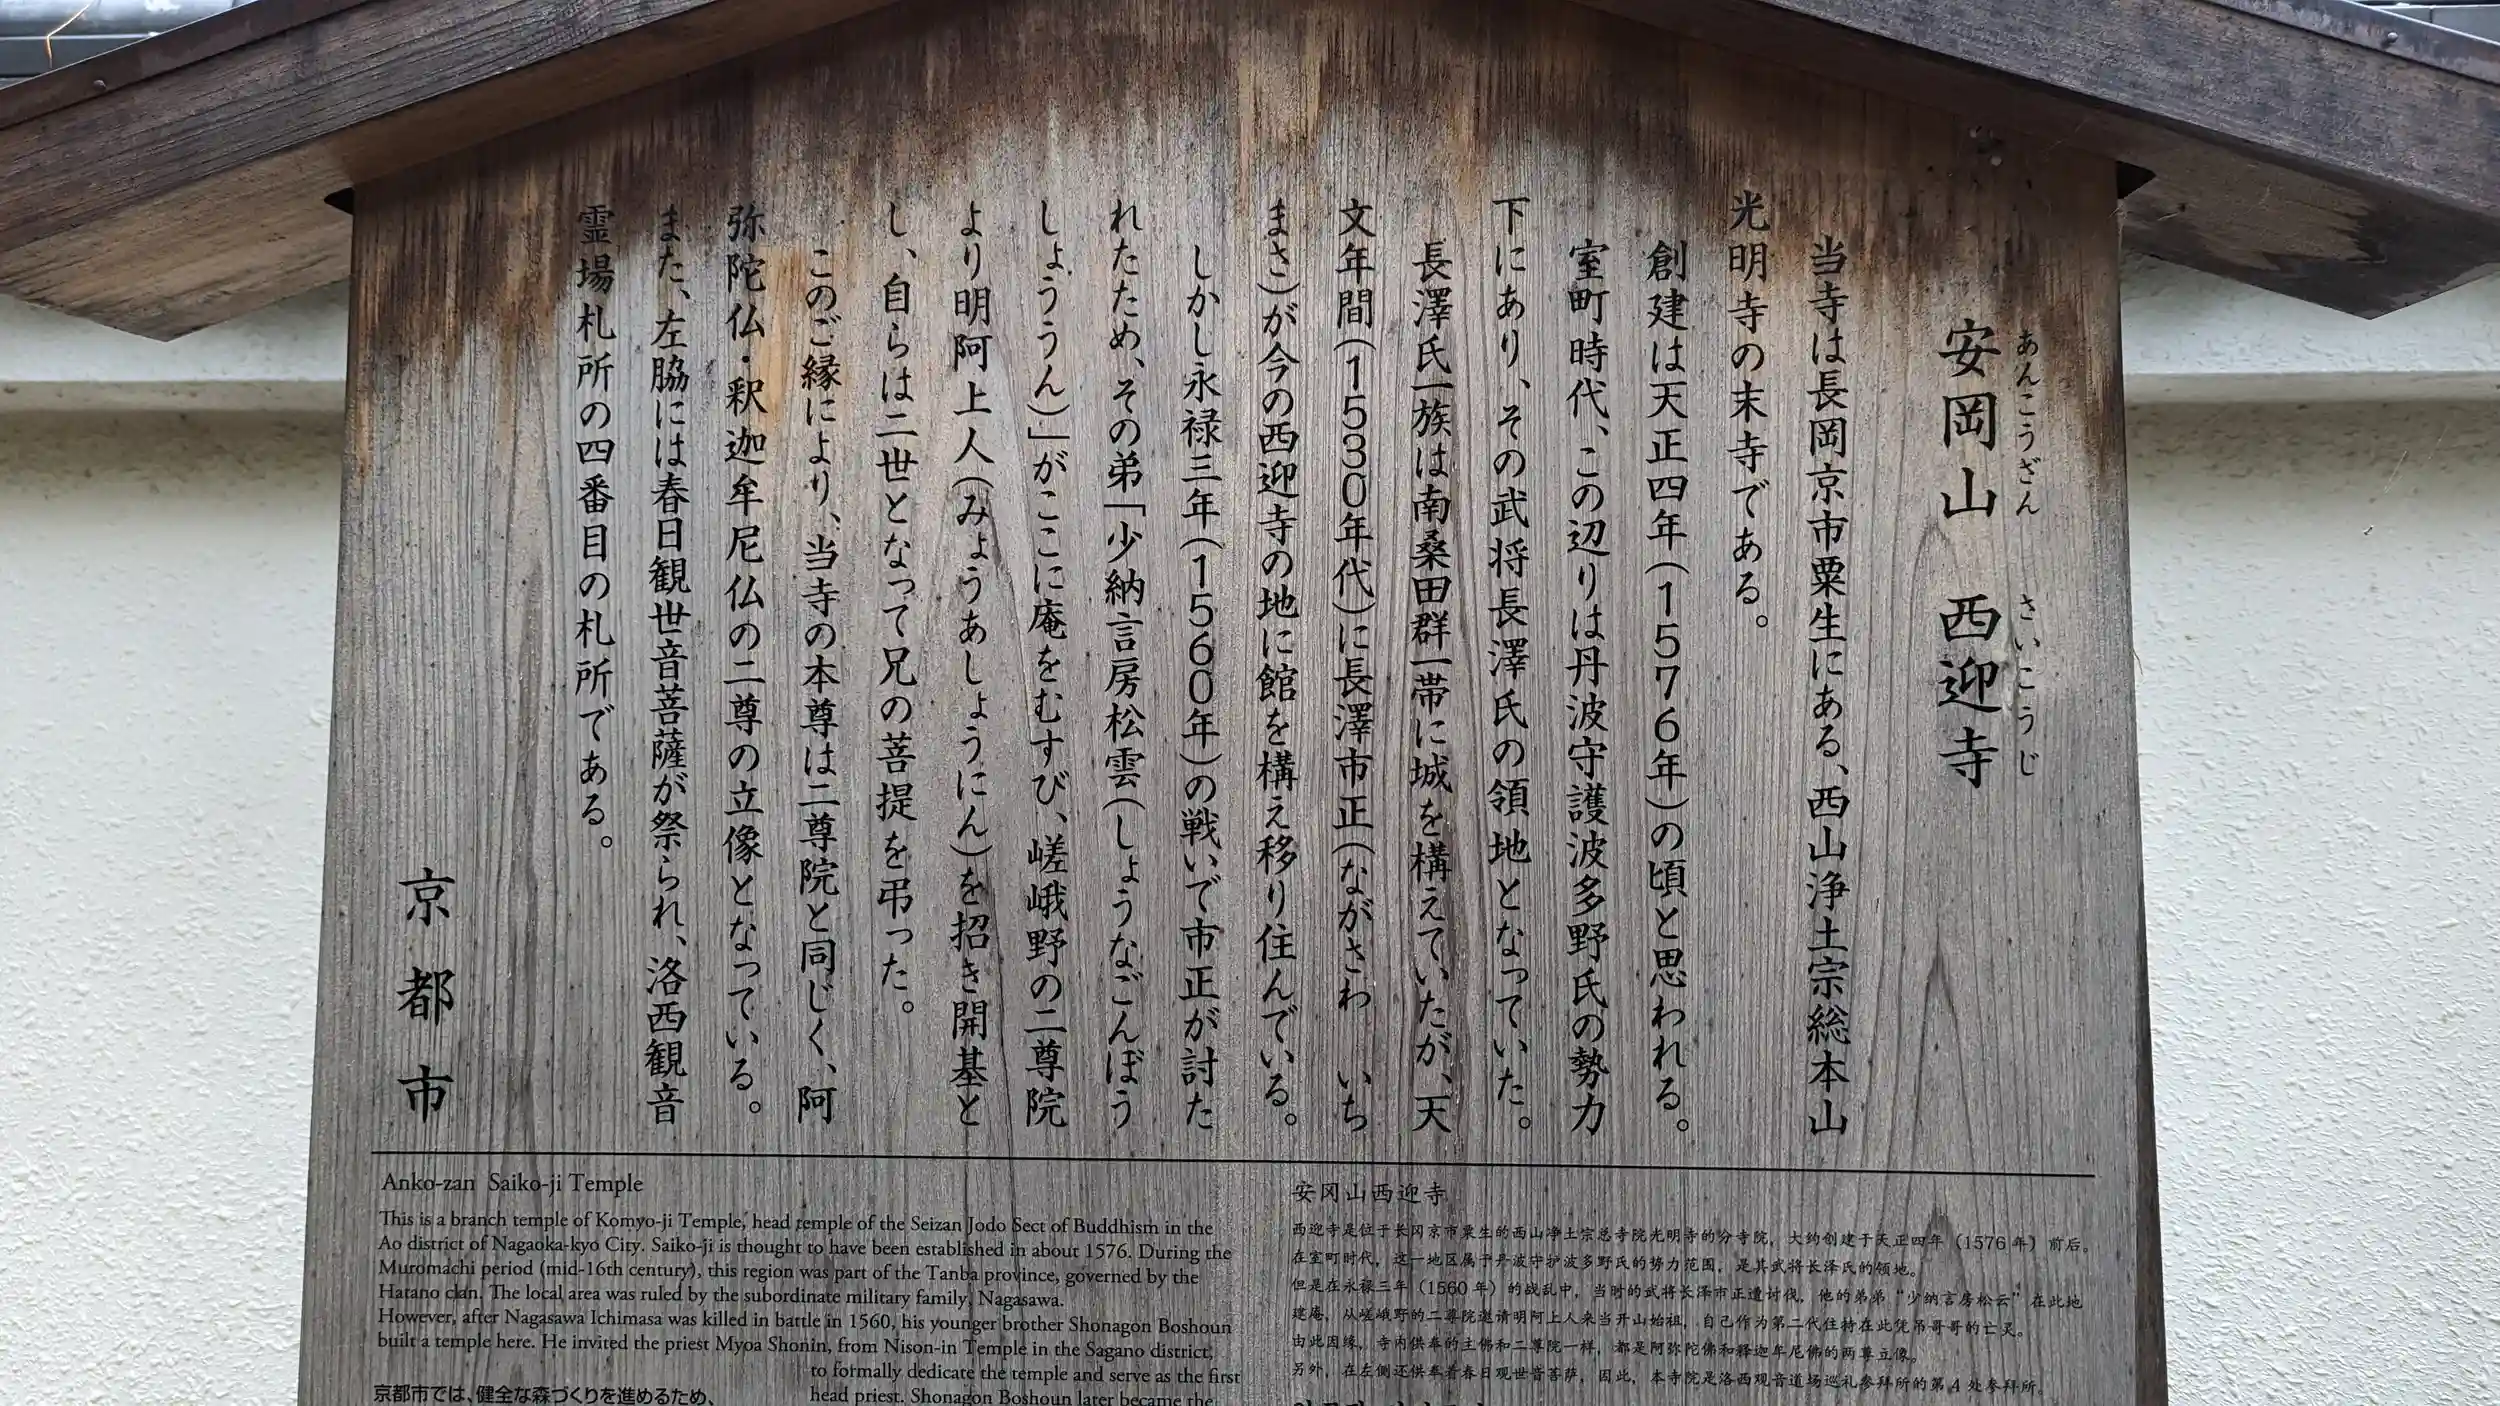 安岡山 西迎寺
あんこうざん さいこうじ
当寺は長岡京市粟生にある、西山浄土宗総本山
光明寺の末寺である。
創建は天正四年(1576年)の頃と思われる。
室町時代、この辺りは丹波守護波多野氏の勢力
下にあり、その武将長澤氏の領地となっていた。
長澤氏一族は南桑田群一帯に城を構えていたが、天
文年間(1530年代)に長澤市正(ながさわ いち
まさ)が今の西迎寺の地に館を構え移り住んでいる。
しかし永禄三年(1560年)の戦いで市正が討た
れたため、その弟「少納言房松雲(しょうなごんぼう
しょううん)」がここに庵をむすび、嵯峨野の二尊院
より明阿上人(みょうあしょうにん)を招き開基と
し、自らは二世となって兄の菩提を弔った。
このご縁により、当寺の本尊は二尊院と同じく、阿
弥陀仏・釈迦牟尼仏の二尊の立像となっている。
また、左脇には春日観世音菩薩が祭られ、洛西観音
霊場札所の四番目の札所である。
京都市
Anko-zan Saiko-ji Temple
This is a branch temple of Komyo-ji Temple, head temple of the Seizan Jodo Sect of Buddhism in the
Ao district of Nagaoka-kyo City. Saiko-ji is thought to have been established in about 1576. During the
Muromachi period (mid-16th century), this region was part of the Tanba province, governed by the
Hatano clan. The local area was ruled by the subordinate military family, Nagasawa.
However, after Nagasawa Ichimasa was killed in battle in 1560, his younger brother Shonagon Boshoun
built a temple here. He invited the priest Myoa Shonin, from Nison-in Temple in the Sagano district,
to formally dedicate the temple and serve as the first
head priest. Shonagon Boshoun later became the
京都市では、健全な森づくりを進めるため、
安冈山西迎寺
西迎寺是位于长冈京市粟生的西山净土宗总寺院光明寺的分寺院，大约创建于天正四年（1576年）前后。
在室町时代，这一地区属于丹波守护波多野氏的势力范围，是其武将长泽氏的领地。
但是在永禄三年（1560年）的战乱中，当时的武将长泽市正遭讨伐，他的弟弟“少纳言房松云”在此地
建庵，从嵯峨野的二尊院邀请明阿上人来当开山始祖，自己作为第二代住持在此凭吊哥哥的亡灵。
由此因缘，寺内供奉的主佛和二尊院一样，都是阿弥陀佛和释迦牟尼佛的两尊立像。
另外，在左侧还供奉着春日观世音菩萨，因此，本寺院是洛西观音道场巡礼参拜所的第4处参拜所。